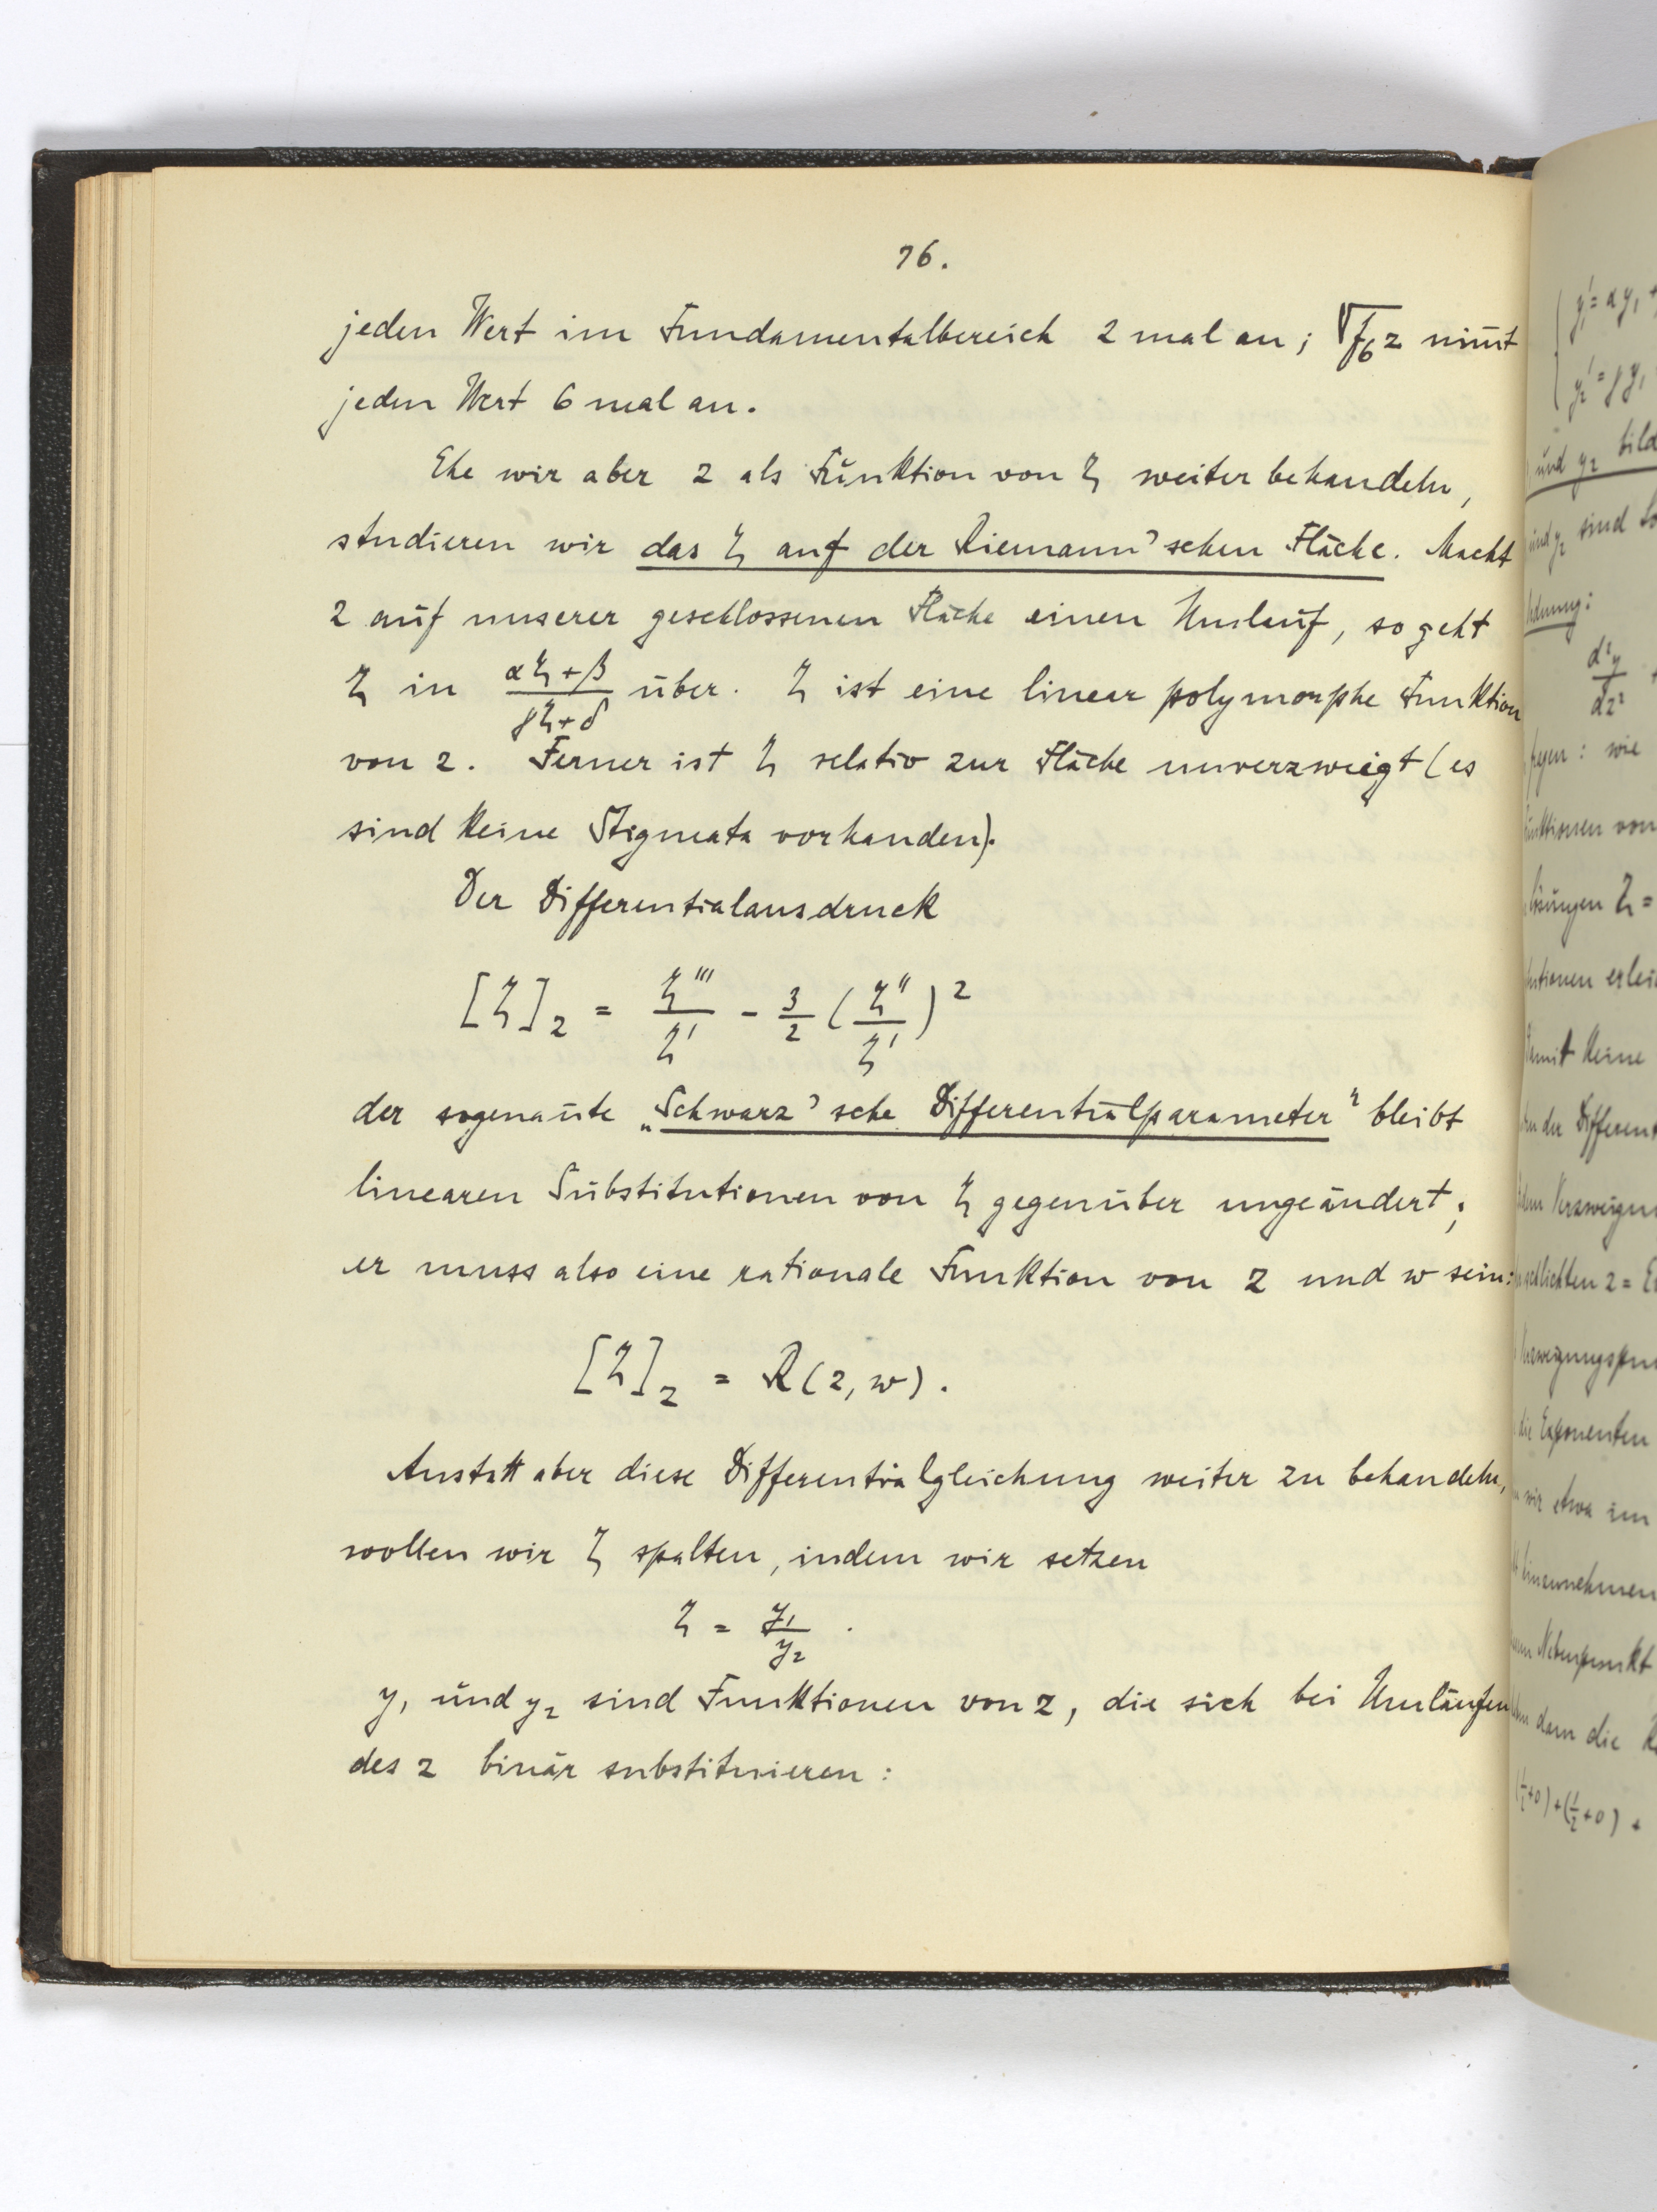 76.
jeden Wert im Fundamentalbereich 2 mal an; √f₆z nim̄t
jeden Wert 6 mal an.
Ehe wir aber z als Funktion von ζ weiter behandeln,
studieren wir das ζ auf der Riemann'schen Fläche. Macht
z auf unserer geschlossenen Fläche einen Umlauf, so geht
ζ in (αζ+β)/(γζ+δ) über. ζ ist eine linear polymorphe Funktion
von z. Ferner ist ζ relativ zur Fläche unverzweigt (es
sind keine Stigmata vorhanden).
Der Differentialausdruck
[ζ]_z = ζ'''/ζ' - 3/2 (ζ''/ζ')²
der sogenan̄te „Schwarz'sche Differentialparameter" bleibt
linearen Substitutionen von ζ gegenüber ungeändert;
er muss also eine rationale Funktion von z und w sein:
[ζ]_z = R(z, w).
Anstatt aber diese Differentialgleichung weiter zu behandeln,
wollen wir ζ spalten, indem wir setzen
ζ = y₁/y₂ .
y₁ und y₂ sind Funktionen von z, die sich bei Umläufen
des z binär substituieren:
y₁' = αy₁ +
y₂' = γy₁
und y₂ bild
sind
d²y/dz²
: wie
von
ζ =
keine
der Different
z =
die Exponenten
wir etwa im
Nebenpunkt
die
(½+0)+(½+0) +